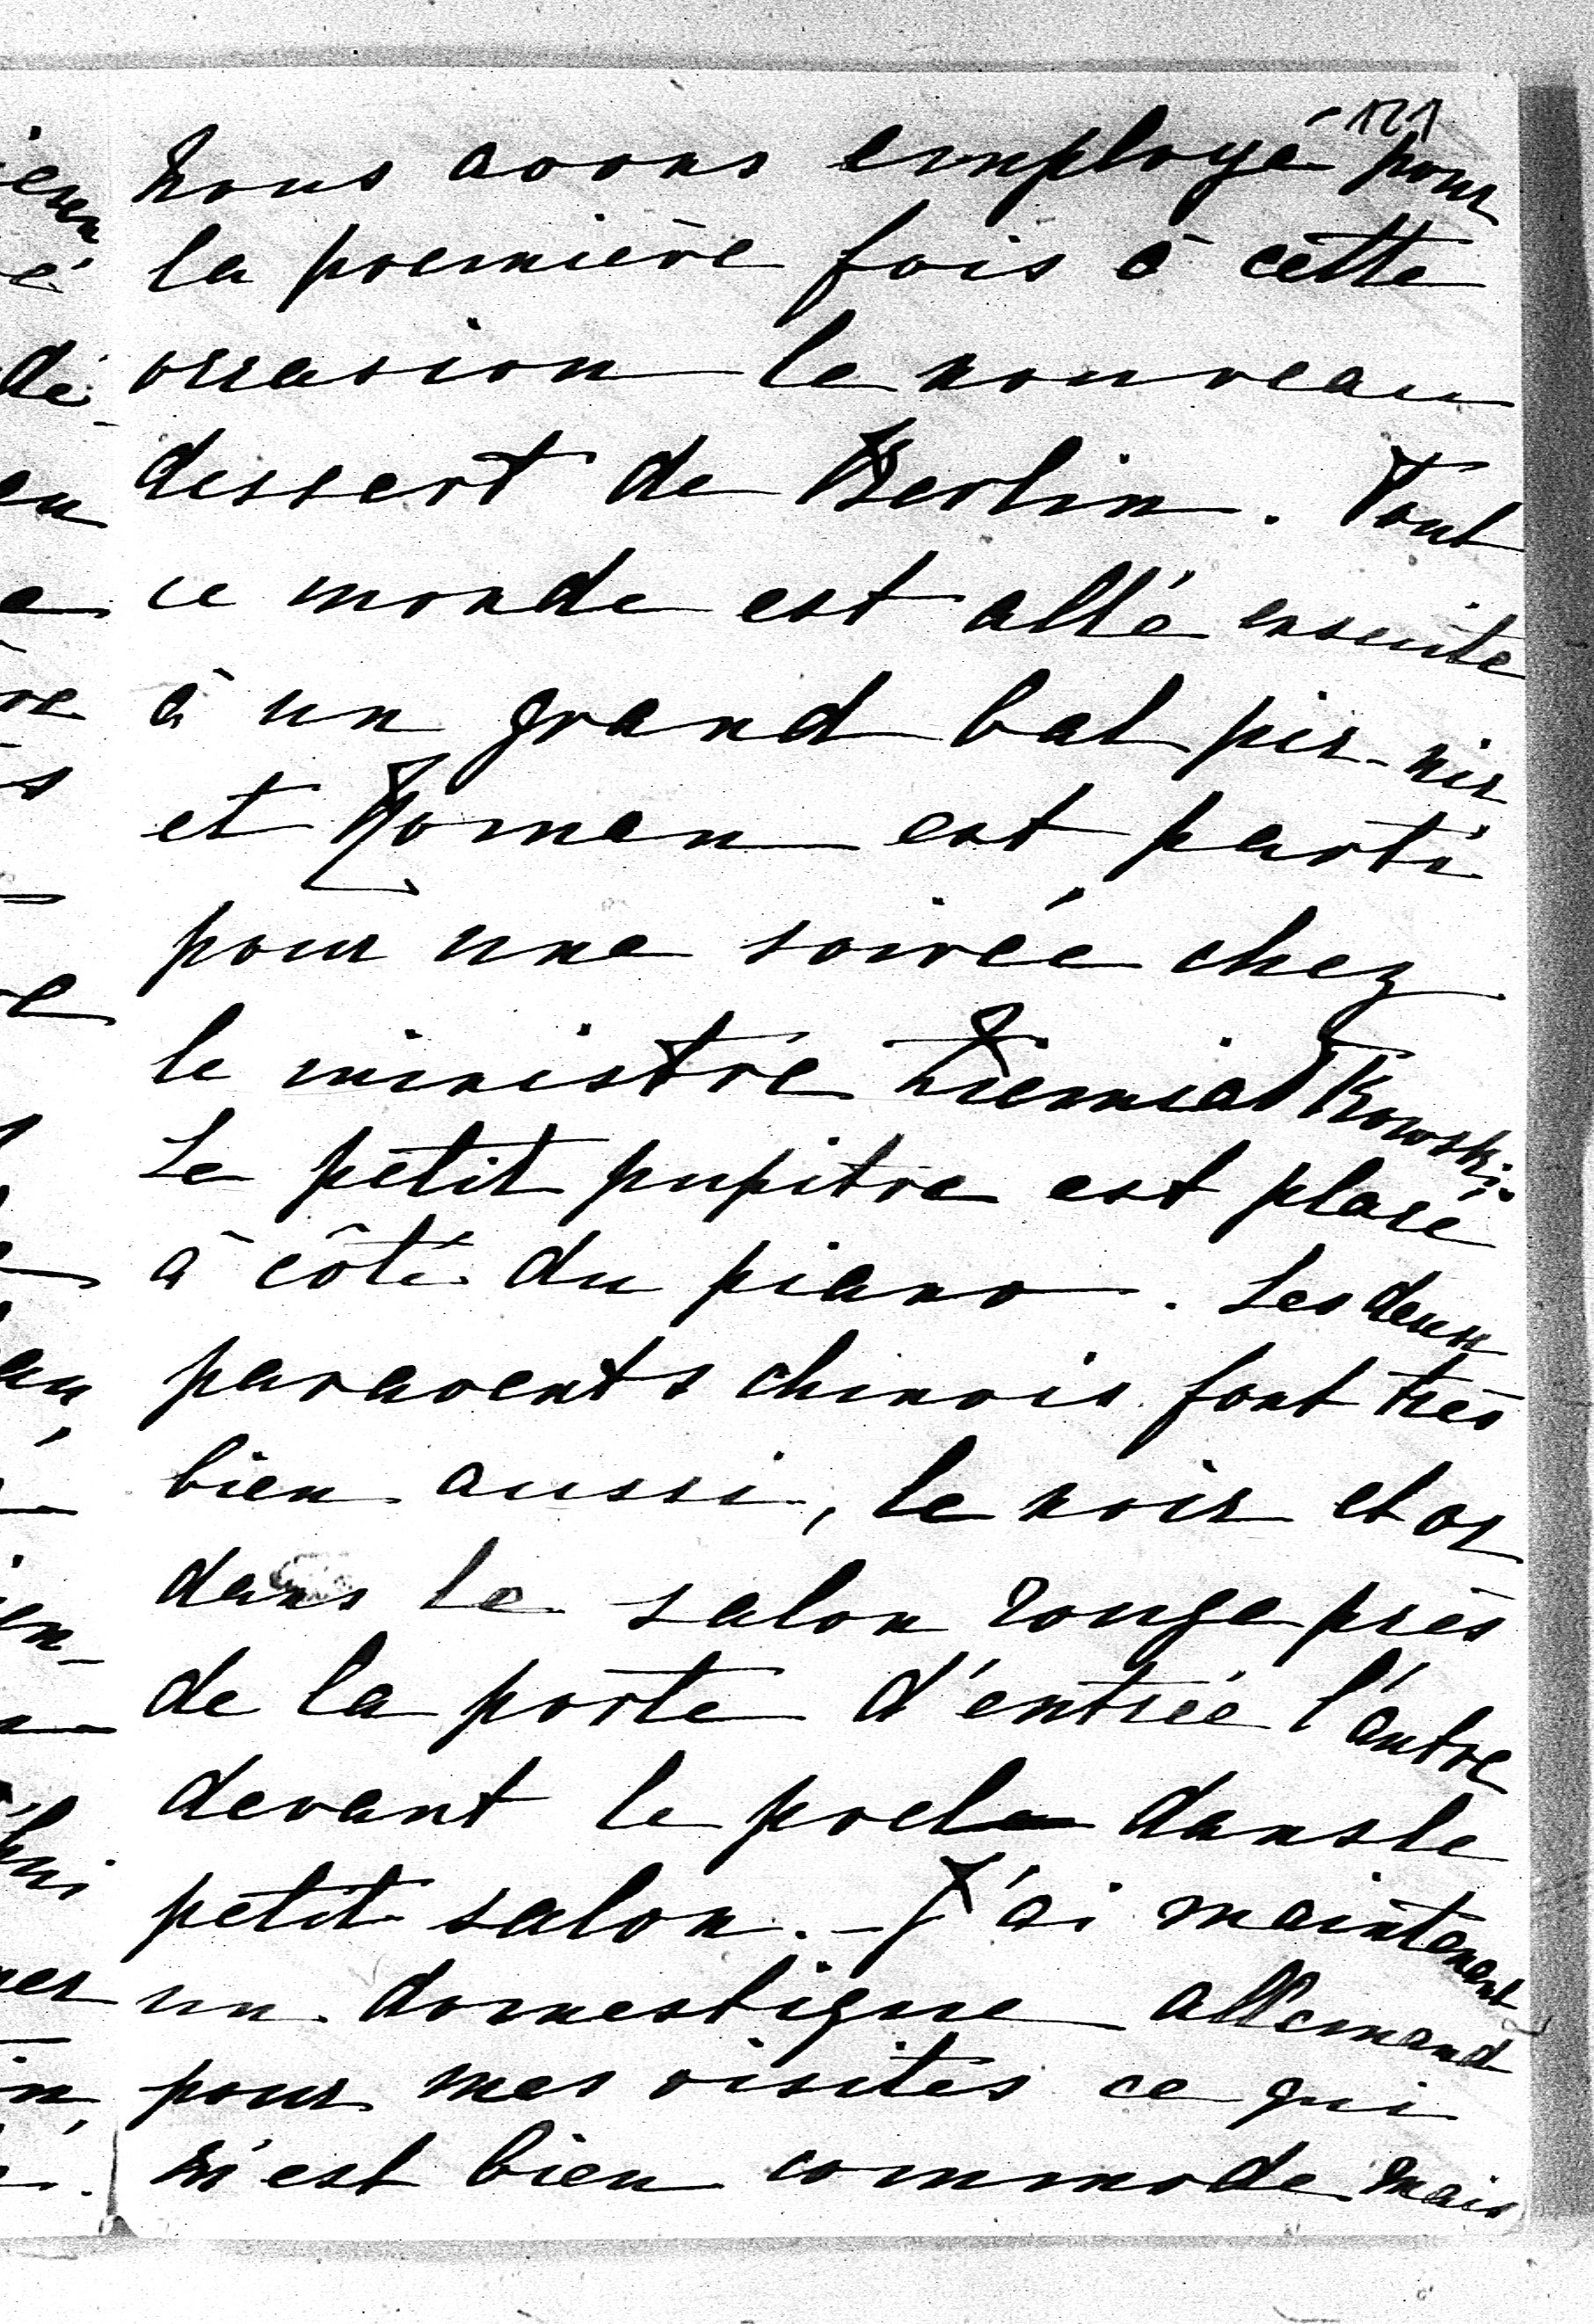 121
nous avons employé pour
la première fois à cette
occasion le nouveau
dessert de Berlin. Tout
ce monde est allé ensuite
à un grand bal
et Roman est parti
pour une soirée chez
le ministre Ziemiałkowski.
Le petit pupitre est placé
à côté du piano. Les deux
paravents chinois font très
bien aussi, le noir et or
dans le salon rouge près
de la porte d'entrée l'autre
devant le poele dans le
petit salon. - J'ai maintenant
un domestique allemand
pour mes visites ce qui
m'est bien commode mais